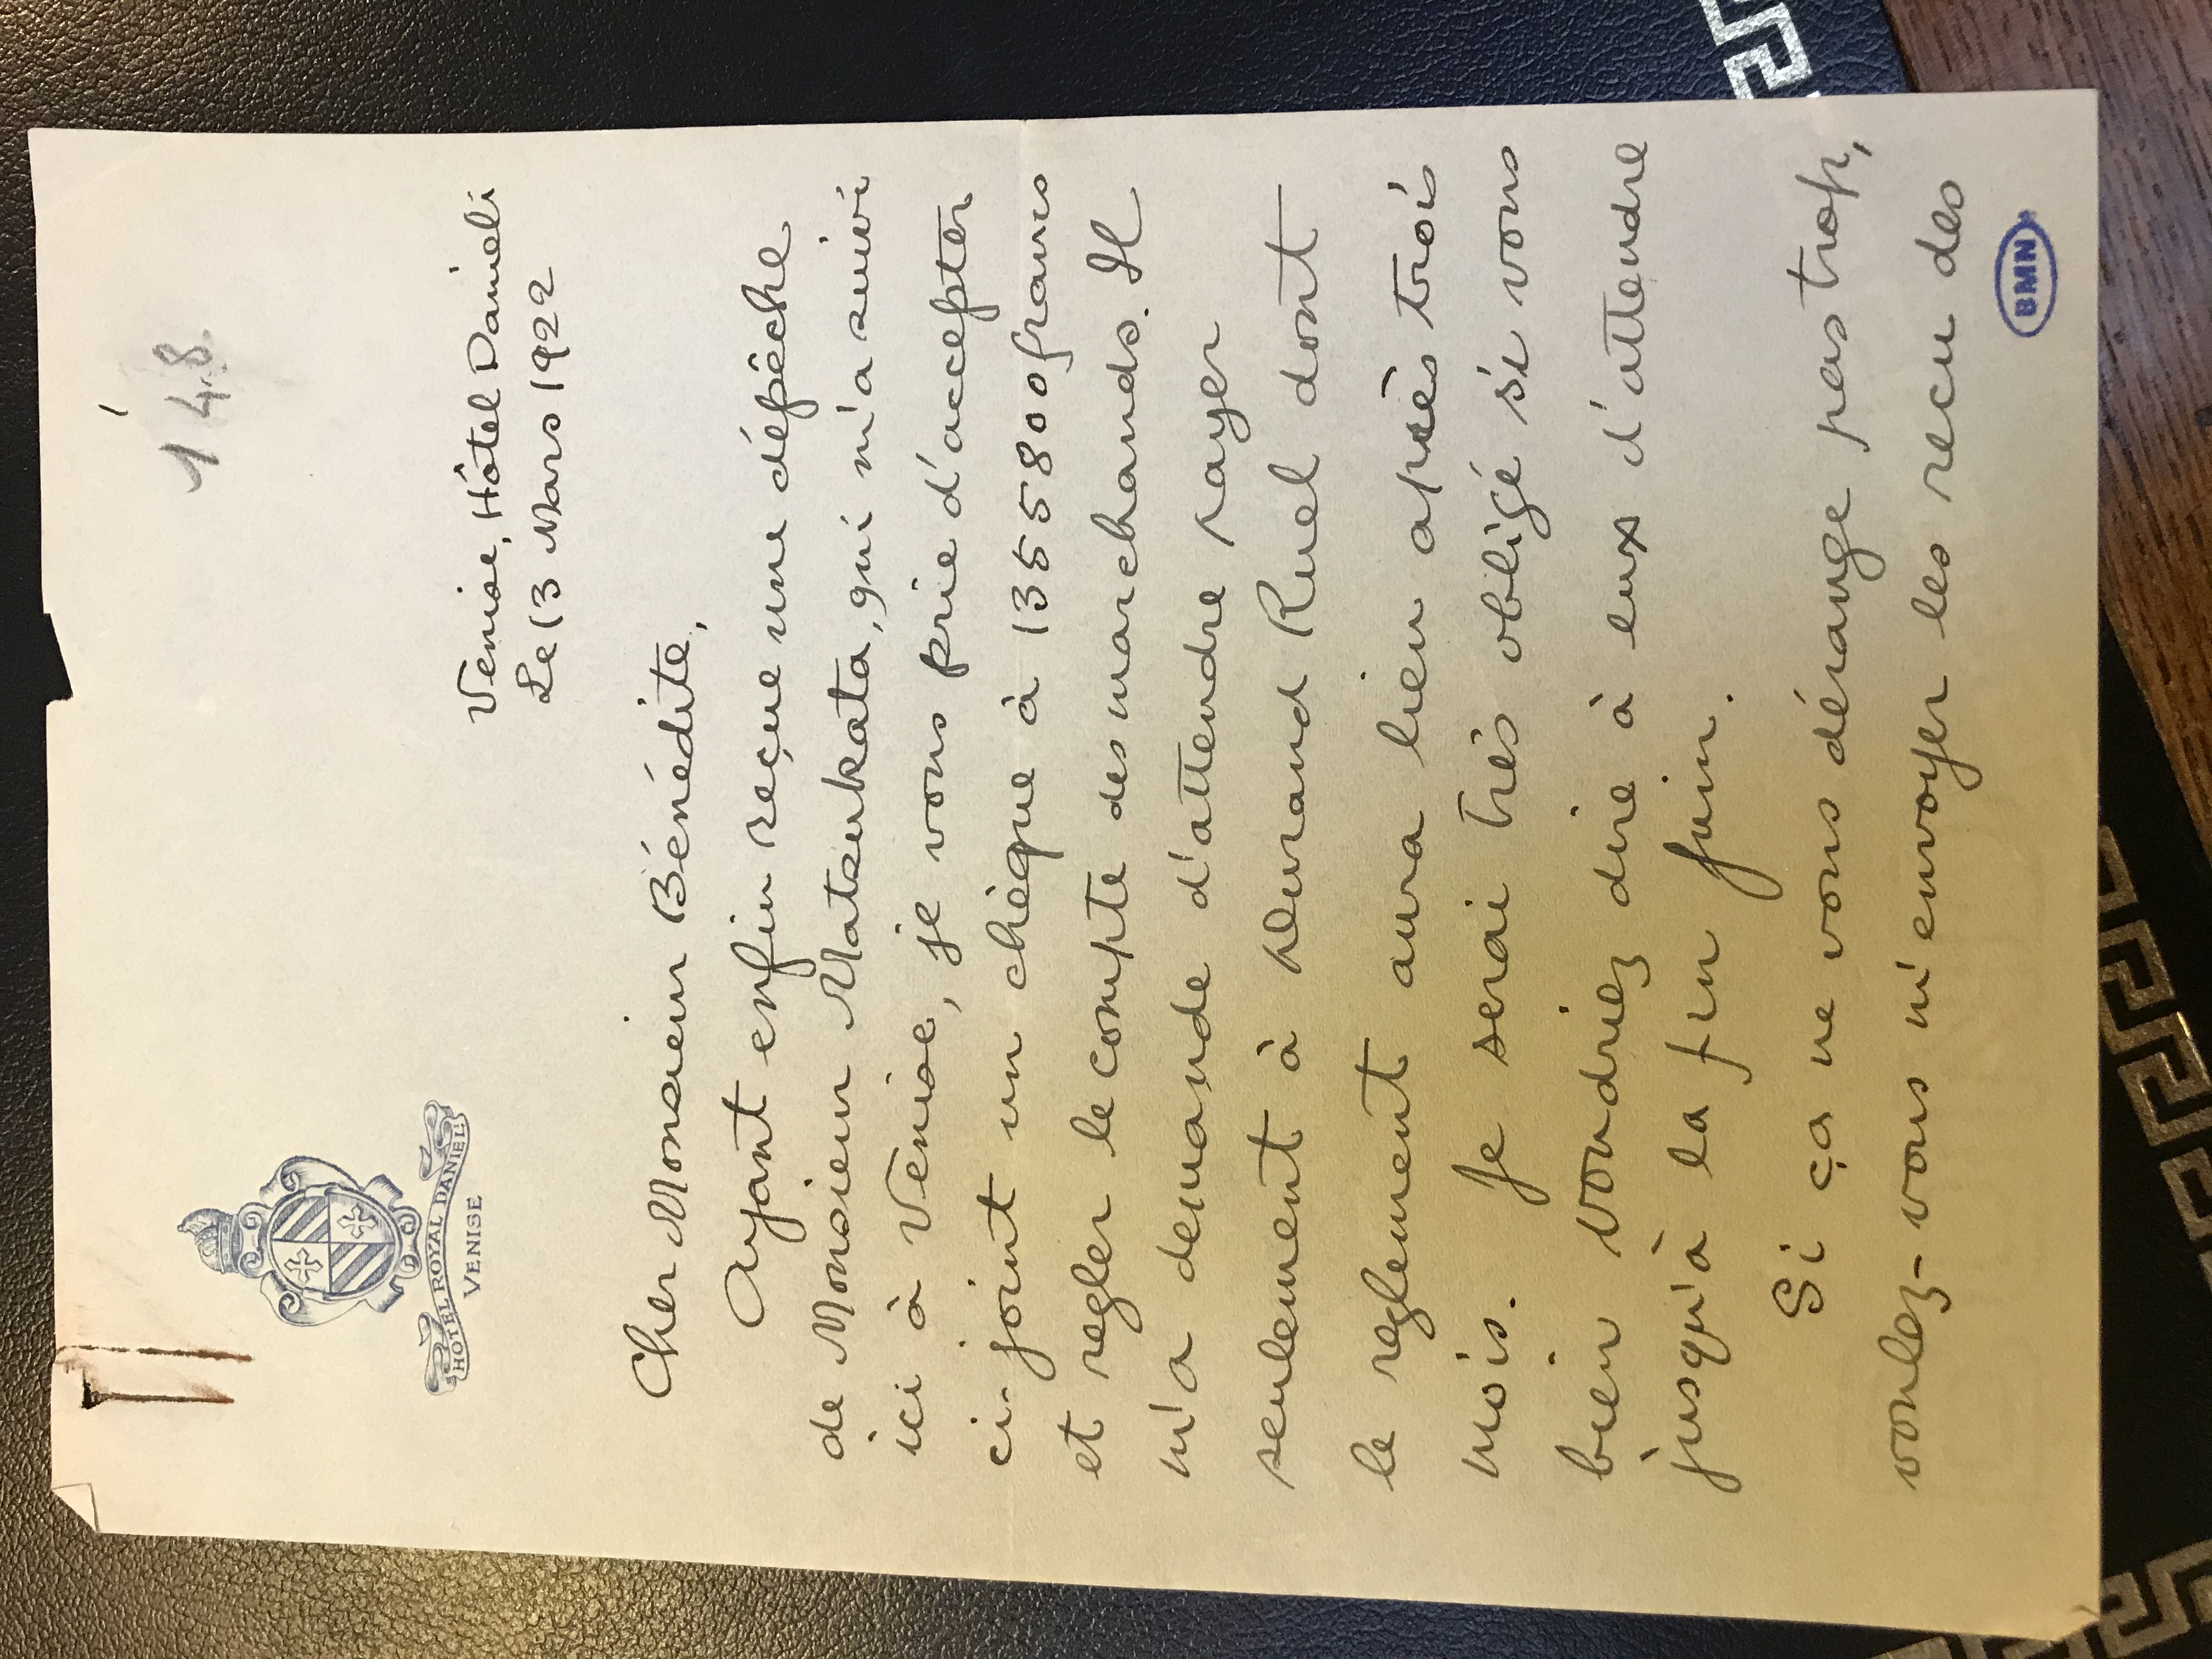 148
HOTEL ROYAL DANIELI
VENISE
Venise, Hôtel Danieli
Le 13 Mars 1922
Cher Monsieur Bénédite,
Ayant enfin reçue une dépêche
de Monsieur Matsukata, qui m'a suivi
ici à Venise, je vous prie d'accepter
ci-joint un chèque à 135580 0 francs
et regler le compte des marchands. Il
m'a demande d'attendre payer
seulement à Durand Ruel dont
le reglement aura lieu après trois
mois. Je serai très obligé si vous
bien voudriez dire à eux d'attendre
jusqu'à la fin Juin.
Si ça ne vous dérange pas trop,
voulez-vous m'envoyer les recu des
BMN